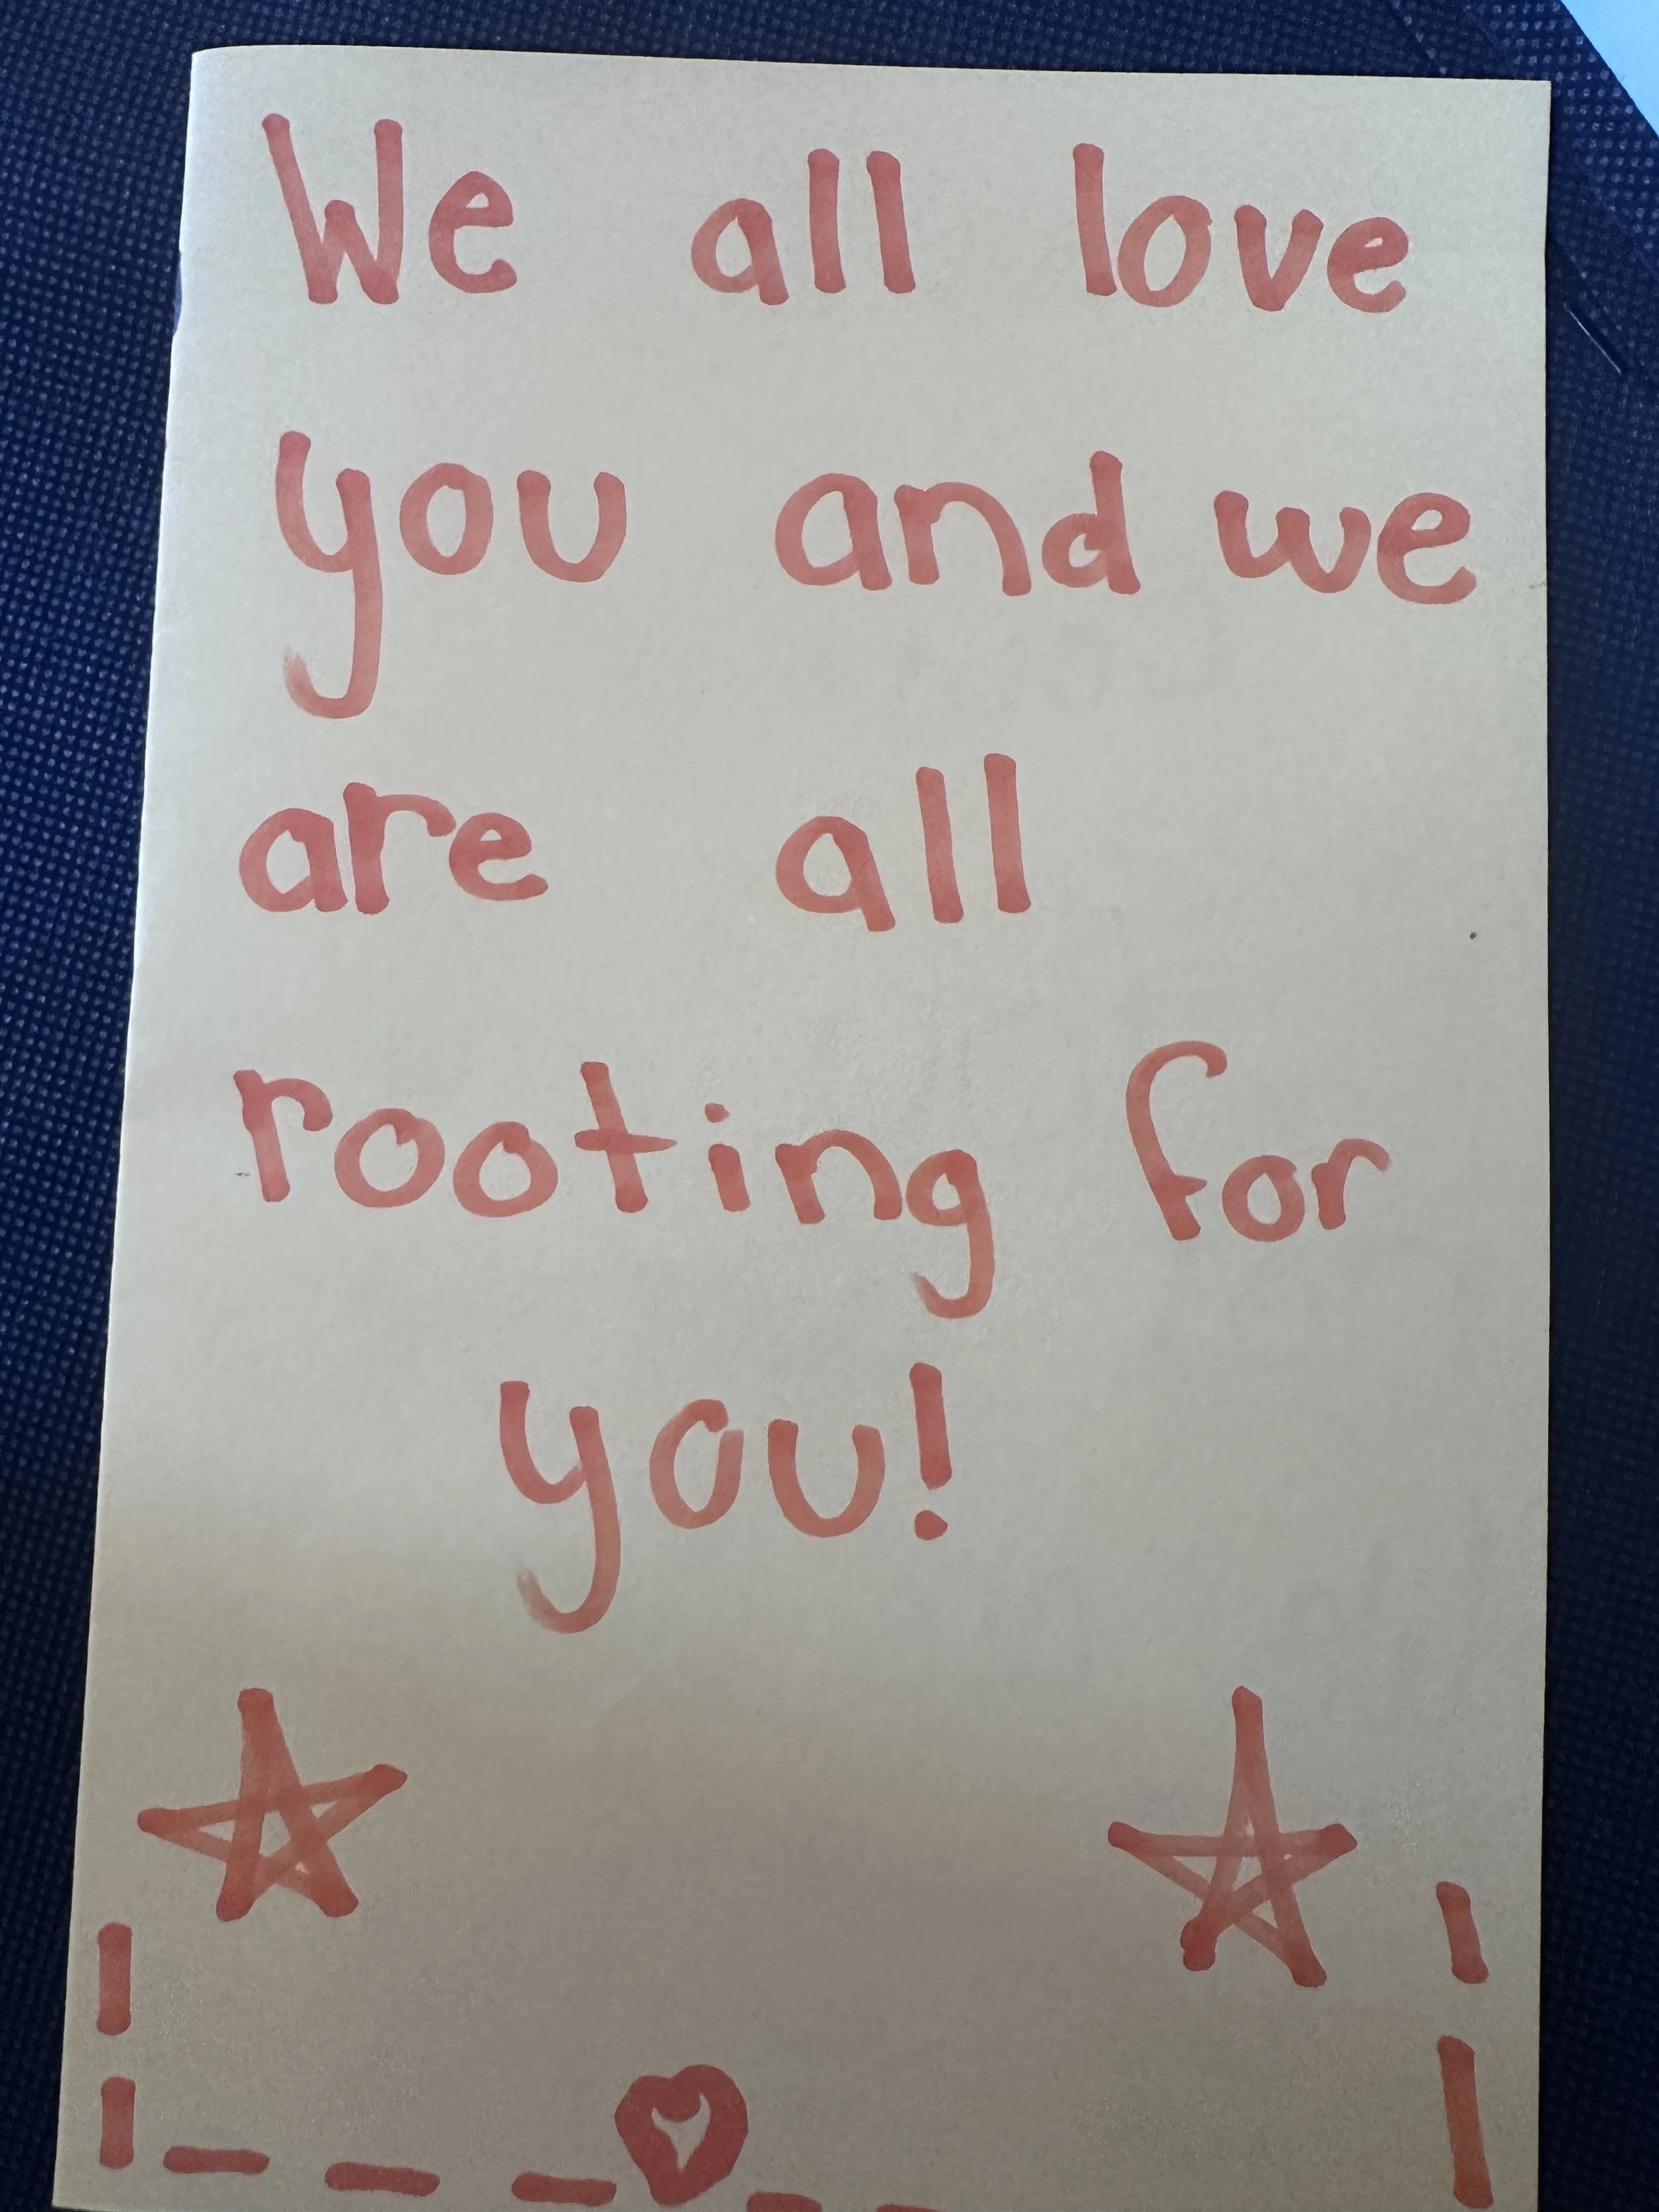 We all love
you and we
are all
rooting for
you!